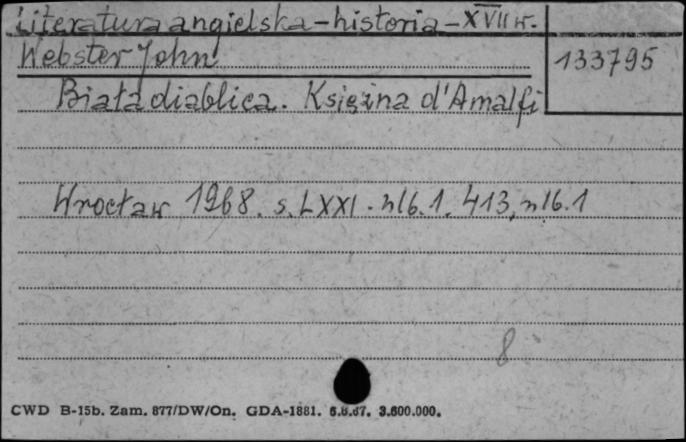 Literatura angielska - historia - XVII w.
Webster John
133795
Biała diablica. Księżna d'Amalfi
Wrocław 1968. s. LXXI. nlb. 1. 413, nlb. 1
8
CWD B-15b. Zam. 877/DW/On. GDA-1881. 6.6.67. 3.600.000.